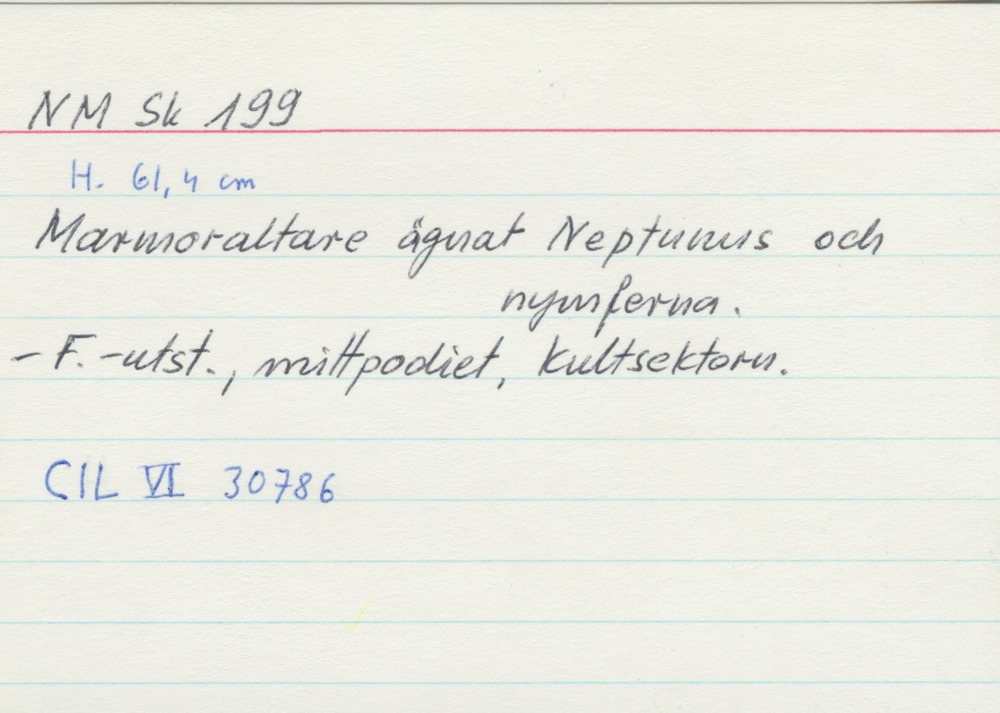 NM Sk 199
H. 61,4 cm
Marmoraltare ägnat Neptunus och
nymferna.
- F.-utst., mittpodiet, kultsektorn.
CIL VI 30786